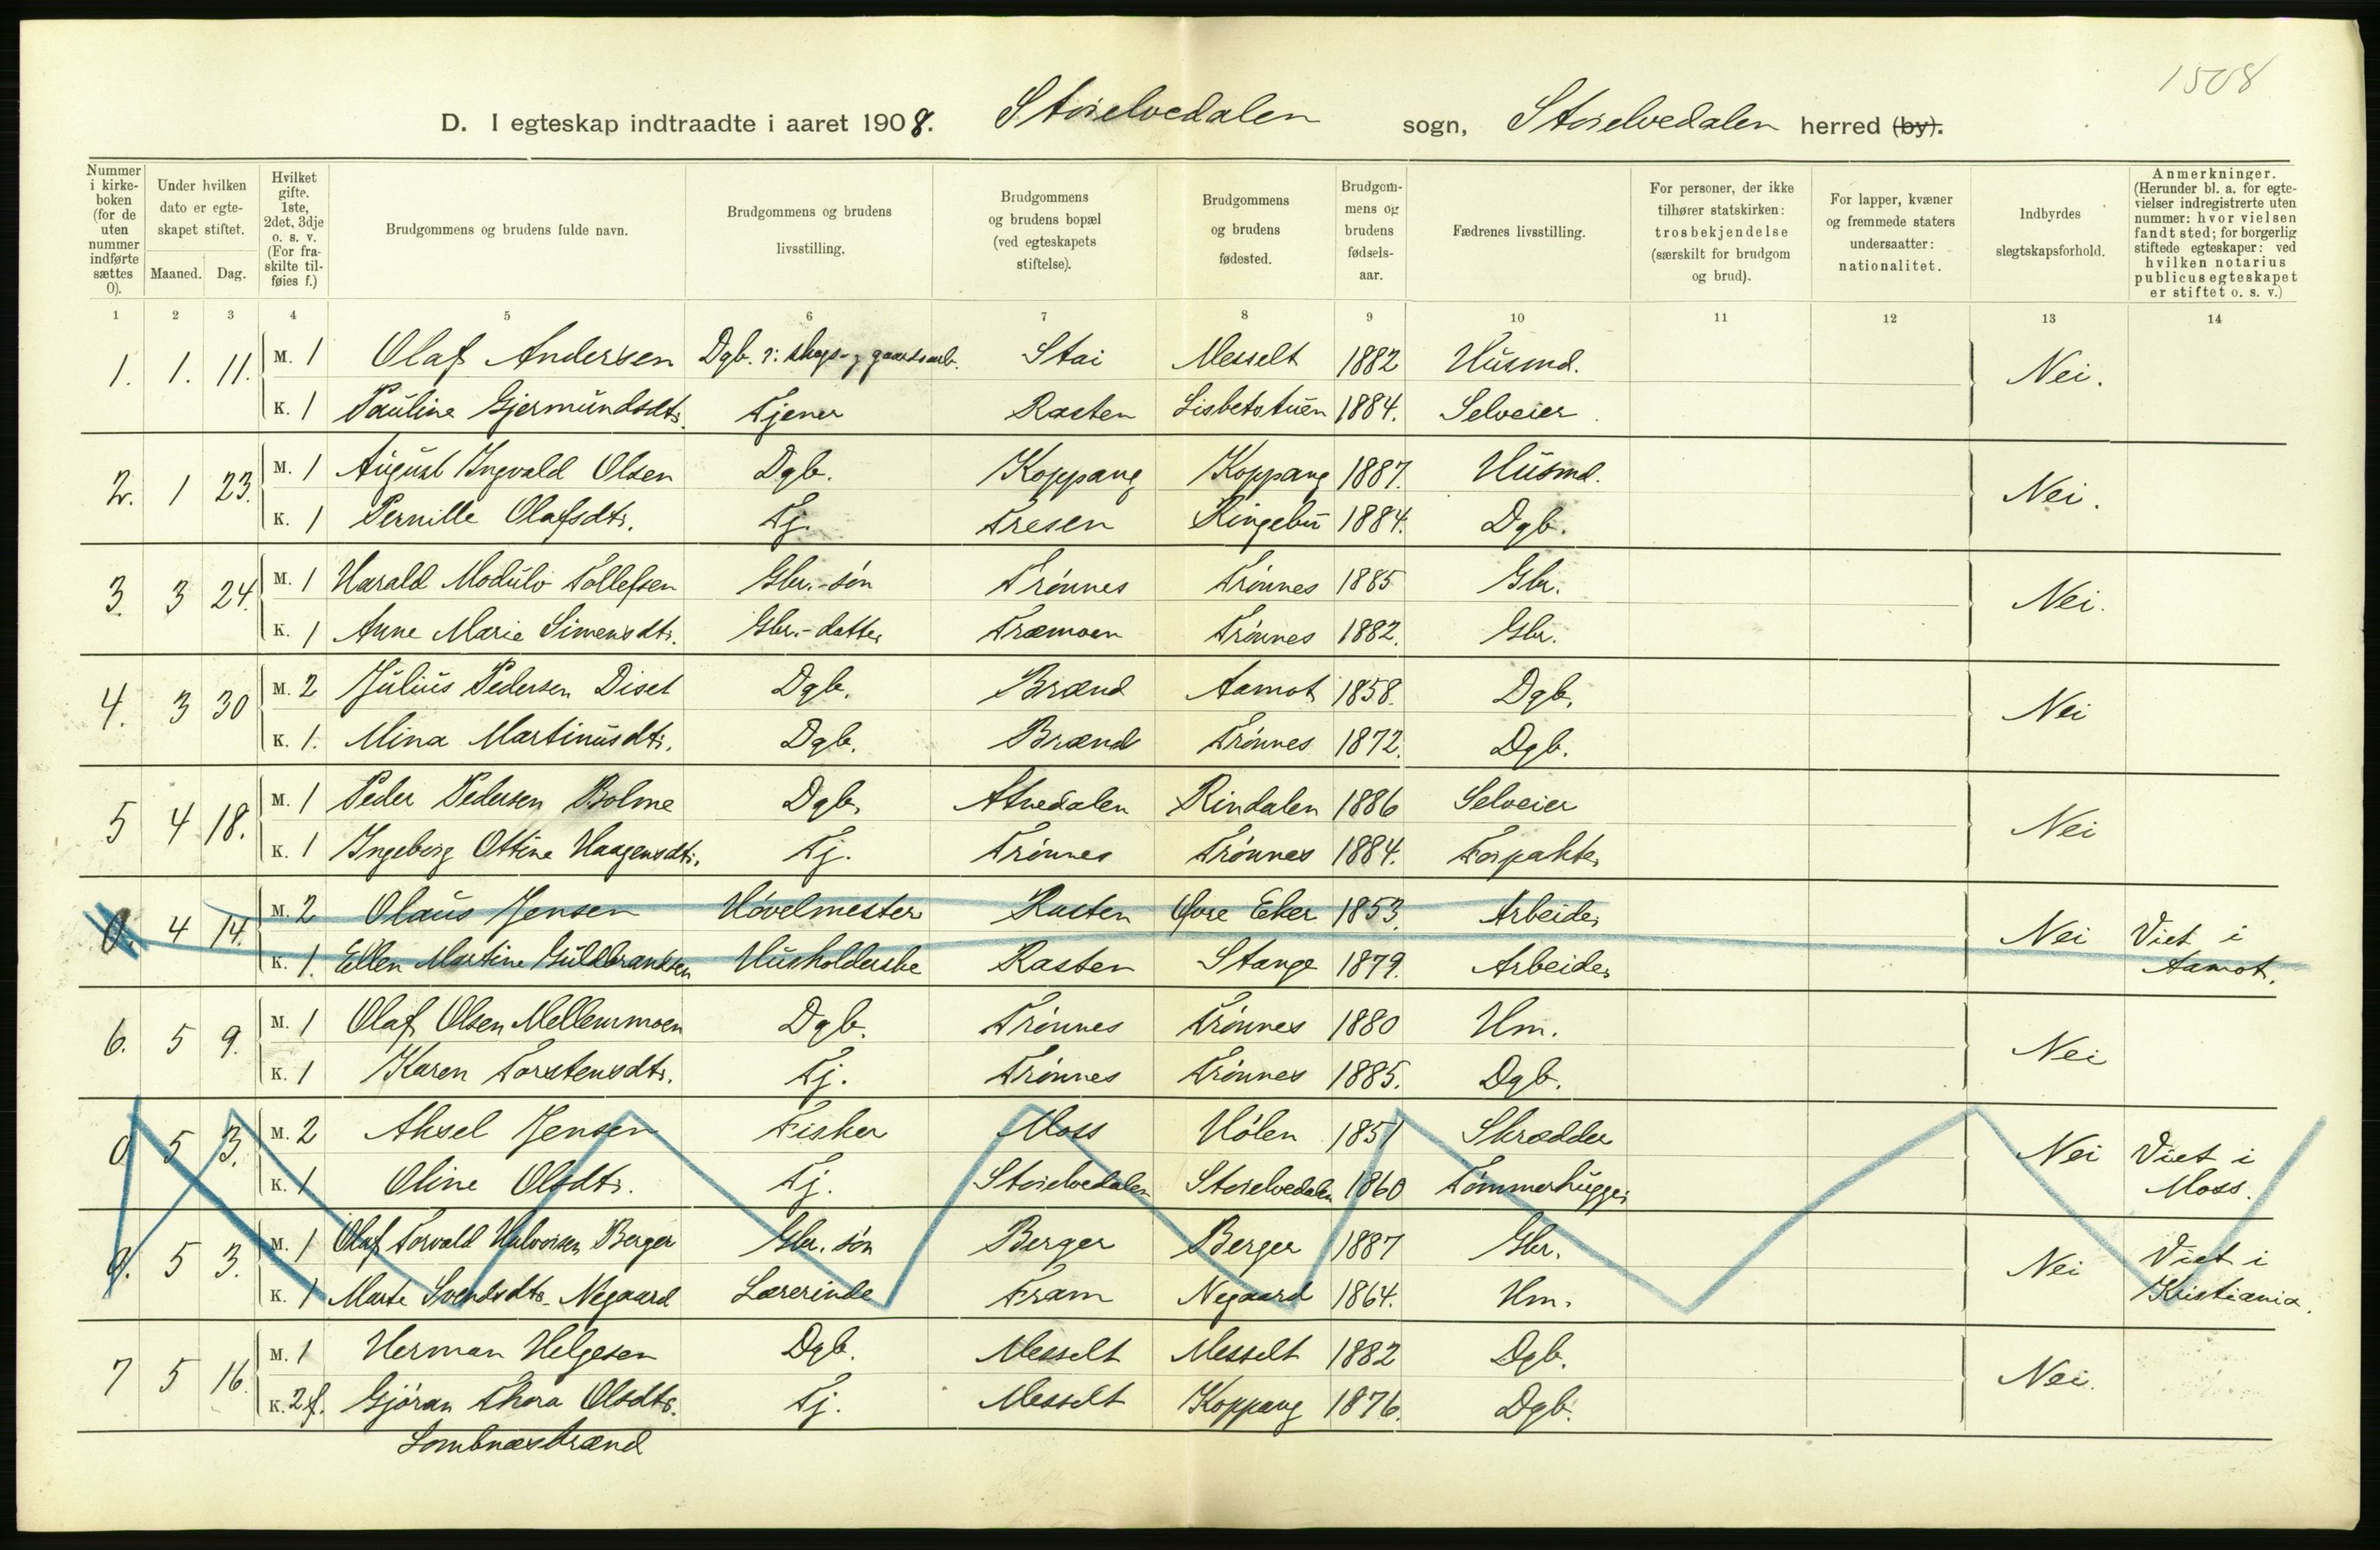 1508
D. I egteskap indtraadte i aaret 1908. Storelvedalen sogn, Storelvedalen herred (by).
Nummer i kirke-boken (for de uten nummer indførte sættes 0).
Under hvilken dato er egte-skapet stiftet.
Maaned. Dag.
Hvilket gifte. 1ste, 2det, 3dje o. s. v. (For fra-skilte til-føies f.)
Brudgommens og brudens fulde navn.
Brudgommens og brudens livsstilling.
Brudgommens og brudens bopæl (ved egteskapets stiftelse).
Brudgommens og brudens fødested.
Brudgom-mens og brudens fødsels-aar.
Fædrenes livsstilling.
For personer, der ikke tilhører statskirken: trosbekjendelse (særskilt for brudgom og brud).
For lapper, kvæner og fremmede staters undersaatter: nationalitet.
Indbyrdes slegtskapsforhold.
Anmerkninger. (Herunder bl. a. for egte-vielser indregistrerte uten nummer: hvor vielsen fandt sted; for borgerlig stiftede egteskaper: ved hvilken notarius publicus egteskapet er stiftet o. s. v.)
1 2 3 4 5 6 7 8 9 10 11 12 13 14
1. 1. 11. M. 1 Olaf Andersen Dgb. ɔ: skogs- og gaardsarb. Stai Messelt 1882 Husmd. Nei.
K. 1 Pauline Gjermundsdtr. Tjener Rasten Lisbetstuen 1884. Selveier.
2. 1 23. M. 1 August Ingvald Olsen Dgb. Koppang Koppang 1887. Husmd. Nei.
K. 1 Pernille Olafsdtr. Tj. Tresen Ringebu 1884. Dgb.
3. 3 24. M. 1 Harald Modulv Tollefsen Gbr.-søn Trønnes Trønnes 1885 Gbr. Nei.
K. 1 Anne Marie Simensdtr. Gbr.-datter Træmoen Trønnes 1882. Gbr.
4. 3 30 M. 2 Julius Pedersen Diset Dgb. Brænd Aamot 1858. Dgb. Nei
K. 1. Mina Martinusdtr. Dgb. Brænd Trønnes 1872. Dgb.
5 4 18. M. 1 Peder Pedersen Bolme Dgb. Atnedalen Rindalen 1886 Selveier Nei
K. 1 Ingeborg Ottine Haagensdtr. Tj. Trønnes Trønnes 1884. Forpakter
0. 4 14. M. 2 Olaus Jensen Høvelmester Rasten Øvre Eker 1853. Arbeider Nei Viet i
K. 1. Ellen Martine Guldbrandsen Husholderske Rasten Stange 1879. Arbeider Aamot.
6. 5 9. M. 1 Olaf Olsen Mellemmoen Dgb. Trønnes Trønnes 1880 Hm. Nei
K. 1 Karen Torstensdtr. Tj. Trønnes Trønnes 1885. Dgb.
0 5 3. M. 2 Aksel Jensen Fisker Moss Hølen 1851 Skrædder Nei Viet i
K. 1 Oline Olsdtr. Tj. Storelvedalen Storelvedalen 1860 Tømmerhugger Moss.
0. 5 3. M. 1 Olaf Torvald Halvorsen Berger Gbr. søn Berger Berger 1887 Gbr. Nei Viet i
K. 1 Marte Svendsdtr. Negaard Lærerinde Fram Negaard 1864. Hm. Kristiania.
7 5 16. M. 1 Herman Helgesen Dgb. Messelt Messelt 1882 Dgb. Nei.
K. 2 f. Gjøran Thora Olsdtr. Tj. Messelt Koppang 1876. Dgb.
Lombnæsbrænd